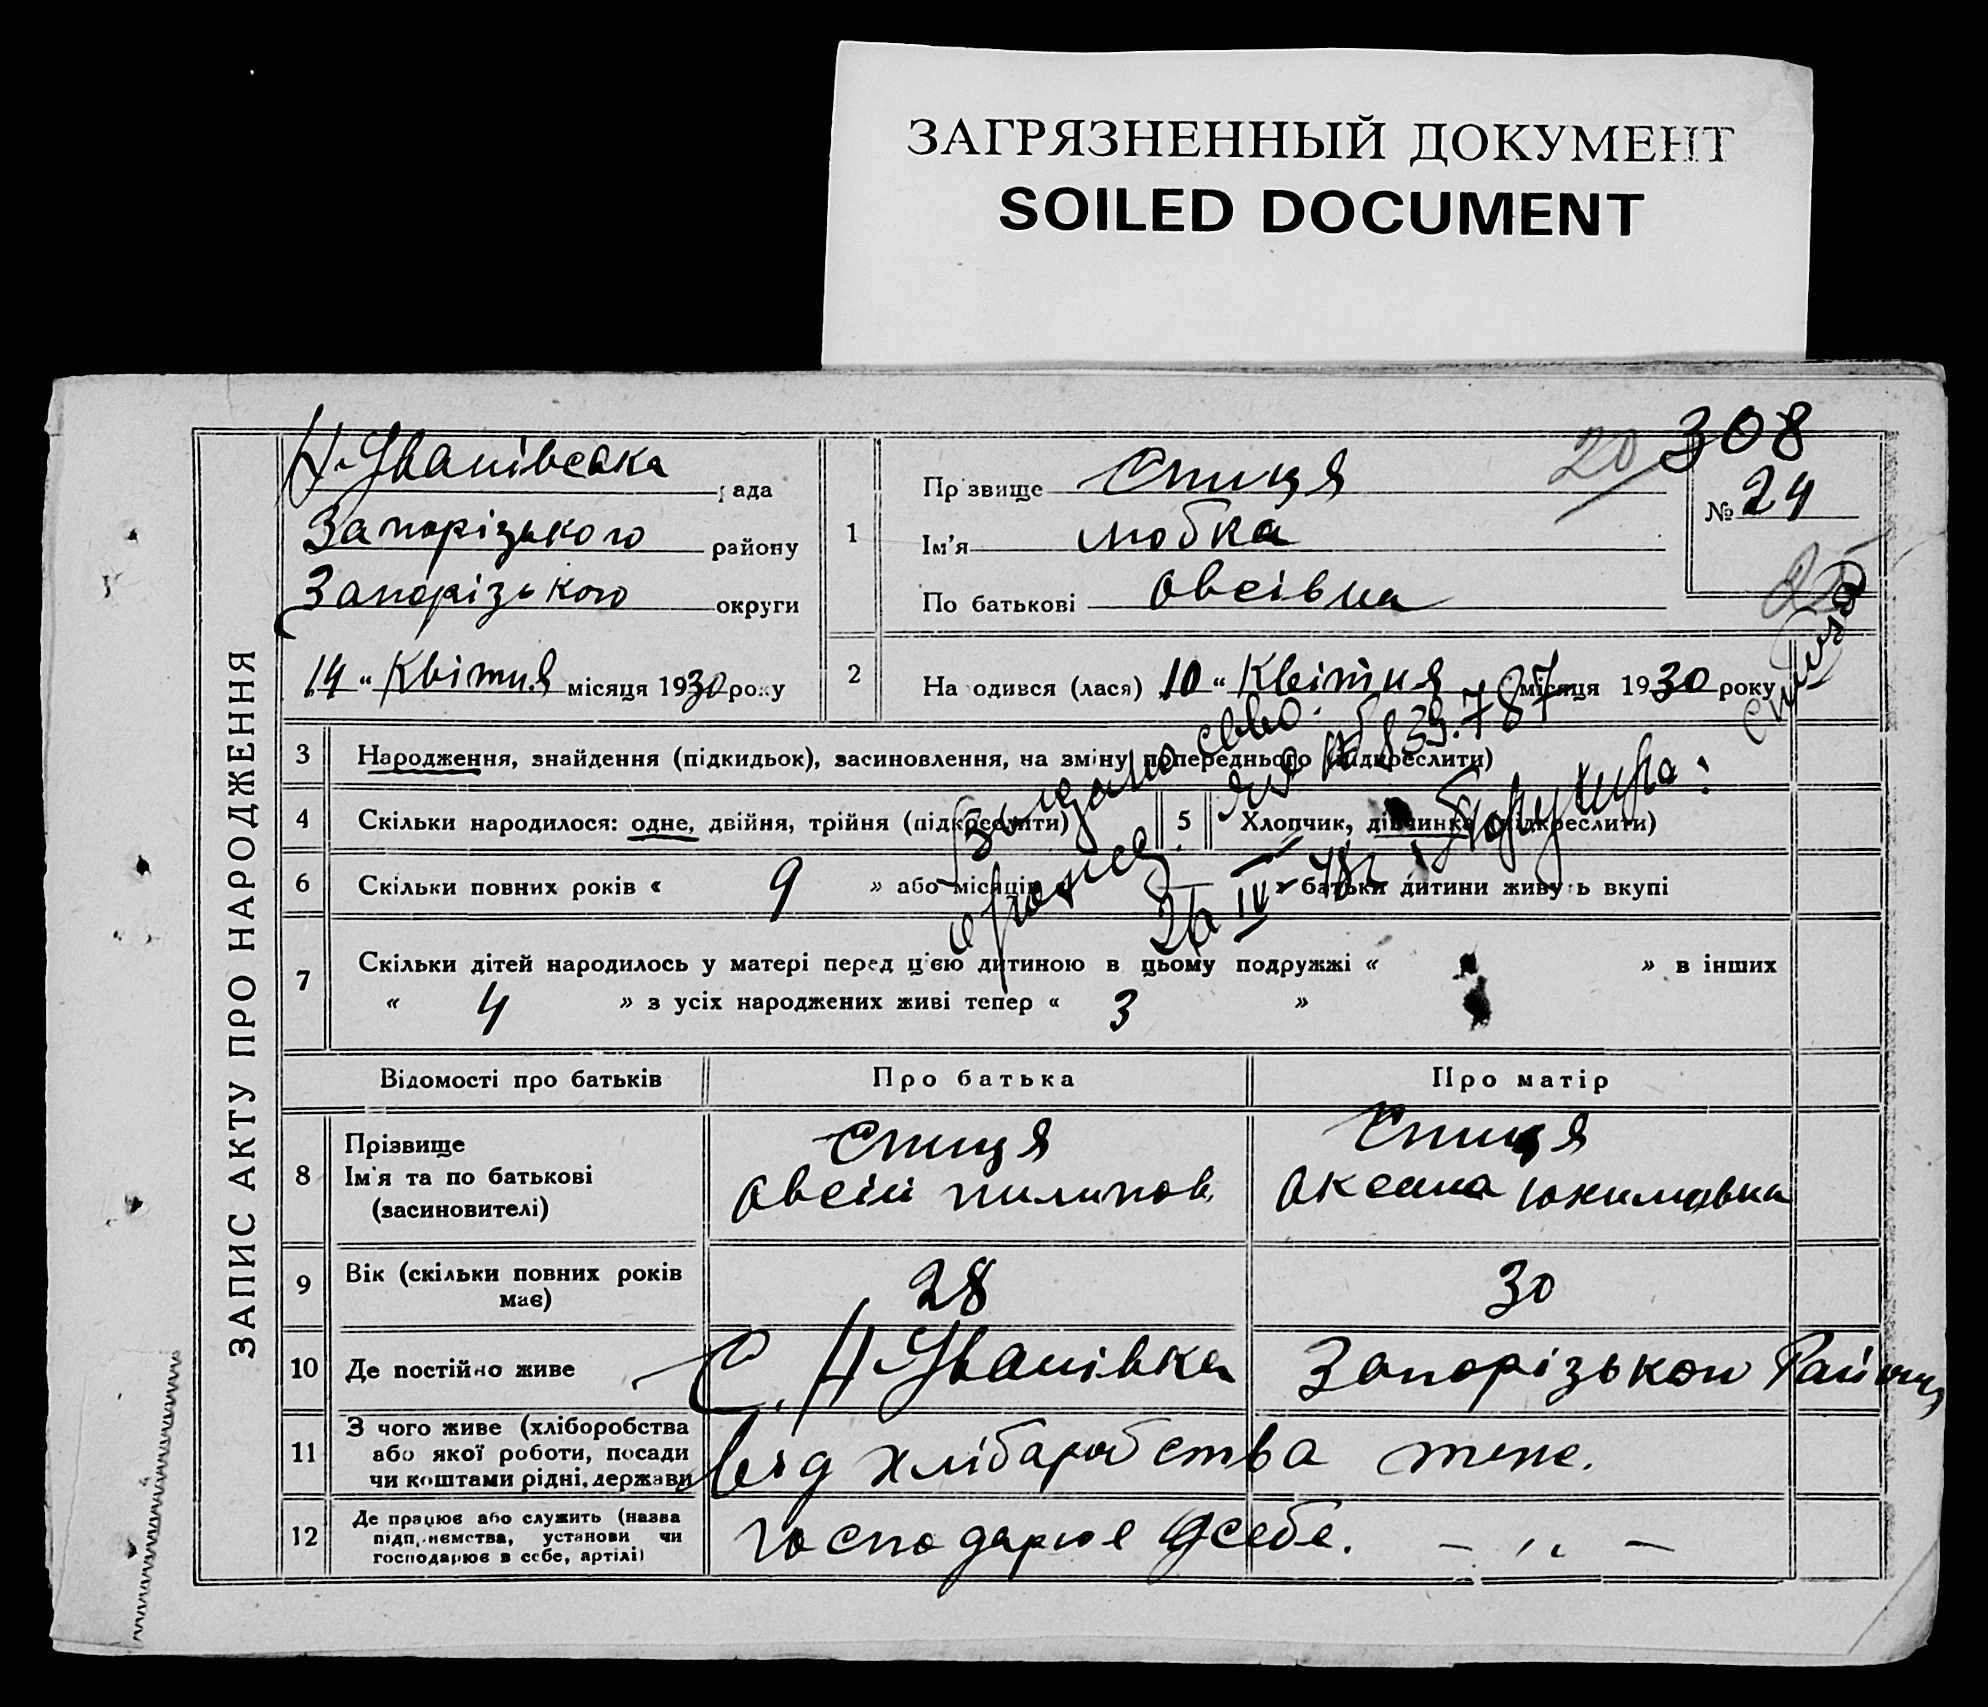 ЗАГРЯЗНЕННЫЙ ДОКУМЕНТ
SOILED DOCUMENT
308
20
ЗАПИС АКТУ ПРО НАРОДЖЕННЯ
Н-Іванівська рада
Запорізького району
Запорізького округи
14 " Квітня місяця 1930 року
1
Прізвище Спиця
Ім'я Любка
По батькові Овсіївна
№ 24
2
Народився (лася) 10 " Квітня місяця 1930 року
3 Народження, знайдення (підкидьок), засиновлення, на зміну попереднього (підкреслити)
4 Скільки народилося: одне, двійня, трійня (підкреслити) 5 Хлопчик, дівчинка (підкреслити)
6 Скільки повних років « 9 » або місяців « — » батьки дитини живуть вкупі
26 IV
7 Скільки дітей народилось у матері перед цією дитиною в цьому подружжі « » в інших
« 4 » з усіх народжених живі тепер « 3 »
Відомості про батьків Про батька Про матір
8 Прізвище
Ім'я та по батькові
(засиновителі)
Спиця
Овсій Пилипов.
Спиця
Оксана Юхимовна
9 Вік (скільки повних років має) 28 30
10 Де постійно живе С. Н-Іванівка Запорізького Району
11 З чого живе (хліборобства
або якої роботи, посади
чи коштами рідні, держави
від хліборобства теж.
12 Де працює або служить (назва
підприємства, установи чи
господарює в себе, артілі)
господарює у себе. — ,, —